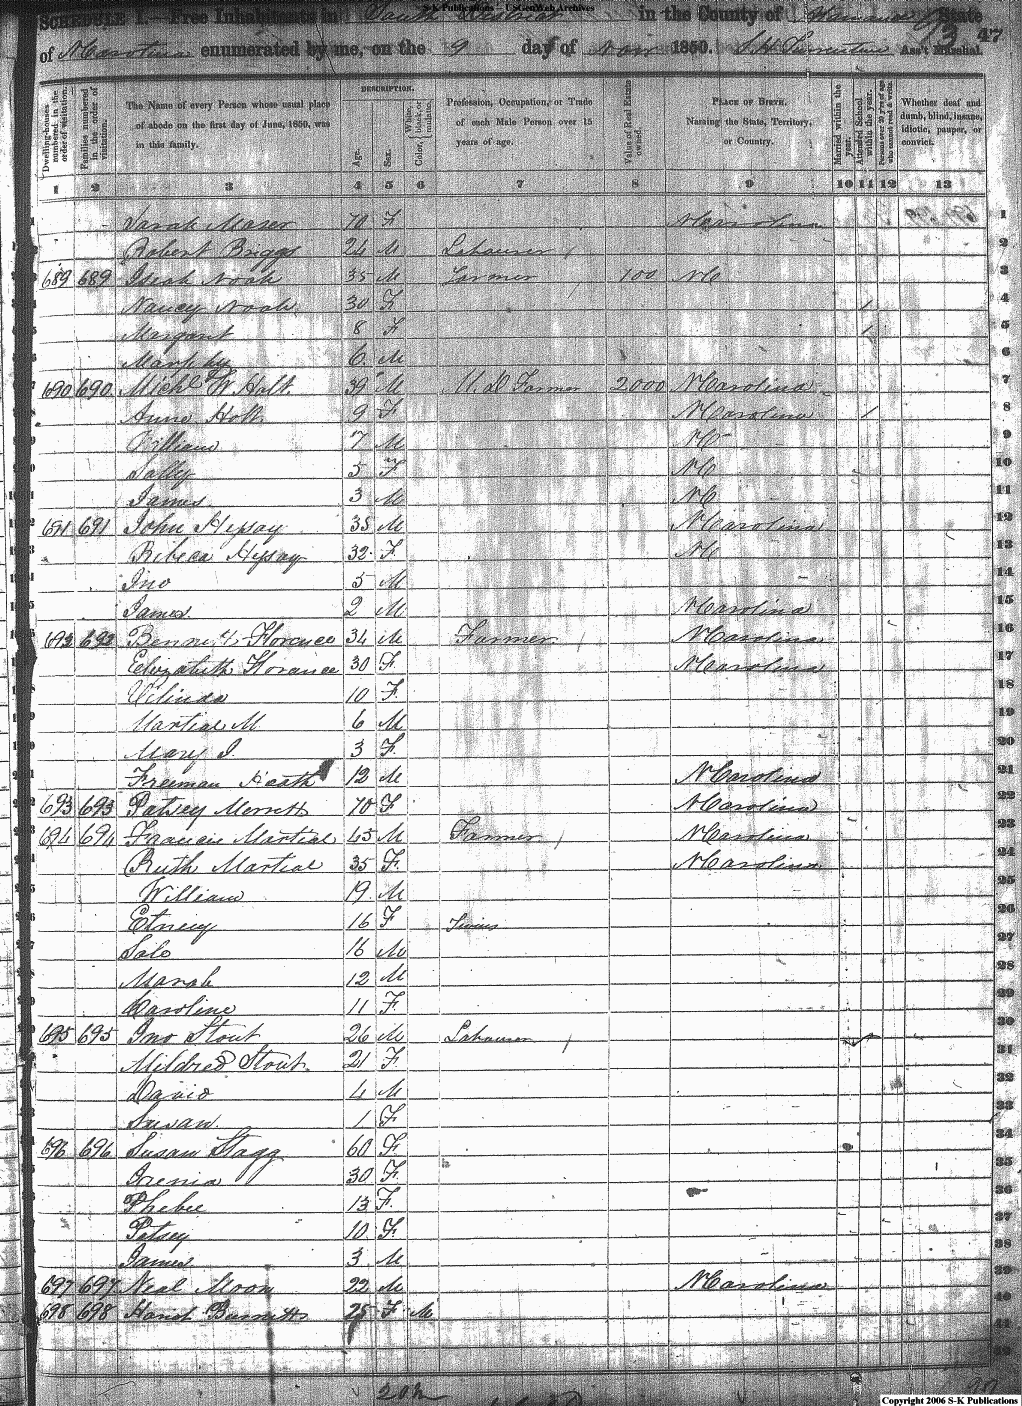 S-K Publications – UsGenWeb Archives
SCHEDULE I.—Free Inhabitants in South District in the County of State 73 47
of N Carolina enumerated by me, on the 9 day of Nov 1850. Ass't Marshal.
Dwelling-houses numbered in the order of visitation.
Families numbered in the order of visitation.
The Name of every Person whose usual place of abode on the first day of June, 1850, was in this family.
DESCRIPTION.
Age.
Sex.
Color, White, black, or mulatto.
Profession, Occupation, or Trade of each Male Person over 15 years of age.
Value of Real Estate owned.
PLACE OF BIRTH. Naming the State, Territory, or Country.
Married within the year.
Attended School within the year.
Persons over 20 y'rs of age who cannot read & write.
Whether deaf and dumb, blind, insane, idiotic, pauper, or convict.
1 2 3 4 5 6 7 8 9 10 11 12 13
Sarah 70 F N Carolina 1
Robert Briggs 24 M Labourer 2
689 689 Isiah Noah 35 M Farmer 100 NC 3
Nancy Noah 30 F 1 4
Margant 8 F 1 5
6 M 6
690 690 Michl W Holt 39 M Farmer 2000 N Carolina 7
Anne Holt 9 F N Carolina 1 8
William 7 M NC 9
Sally 5 F NC 10
James 3 M NC 11
691 691 John 35 M N Carolina 12
Ribeca 32 F NC 13
Jno 5 M 14
James 2 M N Carolina 15
692 692 Florence 34 M Farmer N Carolina 16
30 F N Carolina 17
10 F 18
Martial M 6 M 19
Mary J 3 F 20
Freeman Heath 12 M N Carolina 21
693 693 Patsey Merritt 70 F N Carolina 22
694 694 Francis Martial 45 M Farmer N Carolina 23
Ruth Martial 35 F N Carolina 24
William 19 M 25
16 F Twins 26
16 M 27
12 M 28
Caroline 11 F 29
695 695 Jno Stout 26 M Labourer 30
Mildred Stout 21 F 31
David 4 M 32
Susan 1 F 33
696 696 Susan Stagg 60 F 34
Irenia 30 F 35
Phebee 13 F 36
Petsey 10 F 37
James 3 M 38
697 697 Neal Moon 22 M N Carolina 39
698 698 25 F M 40
41
42
Copyright 2006 S-K Publications